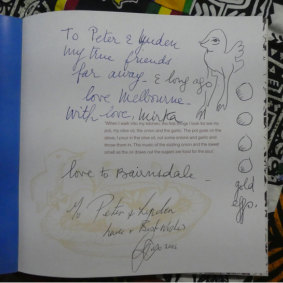 To Peter & Lynden
my true friends
far away - & long ago
love Melbourne -
with love, Mirka
When I walk into my kitchen, the first things I look for are my
pot, my olive oil, the onion and the garlic. The pot goes on the
stove, I pour in the olive oil, cut some onions and garlic and
throw them in. The music of the sizzling onion and the sweet
smell as the air drakes
love to Bairnsdale
gold
eggs.
To Peter & Lynden
Love & Best Wishes